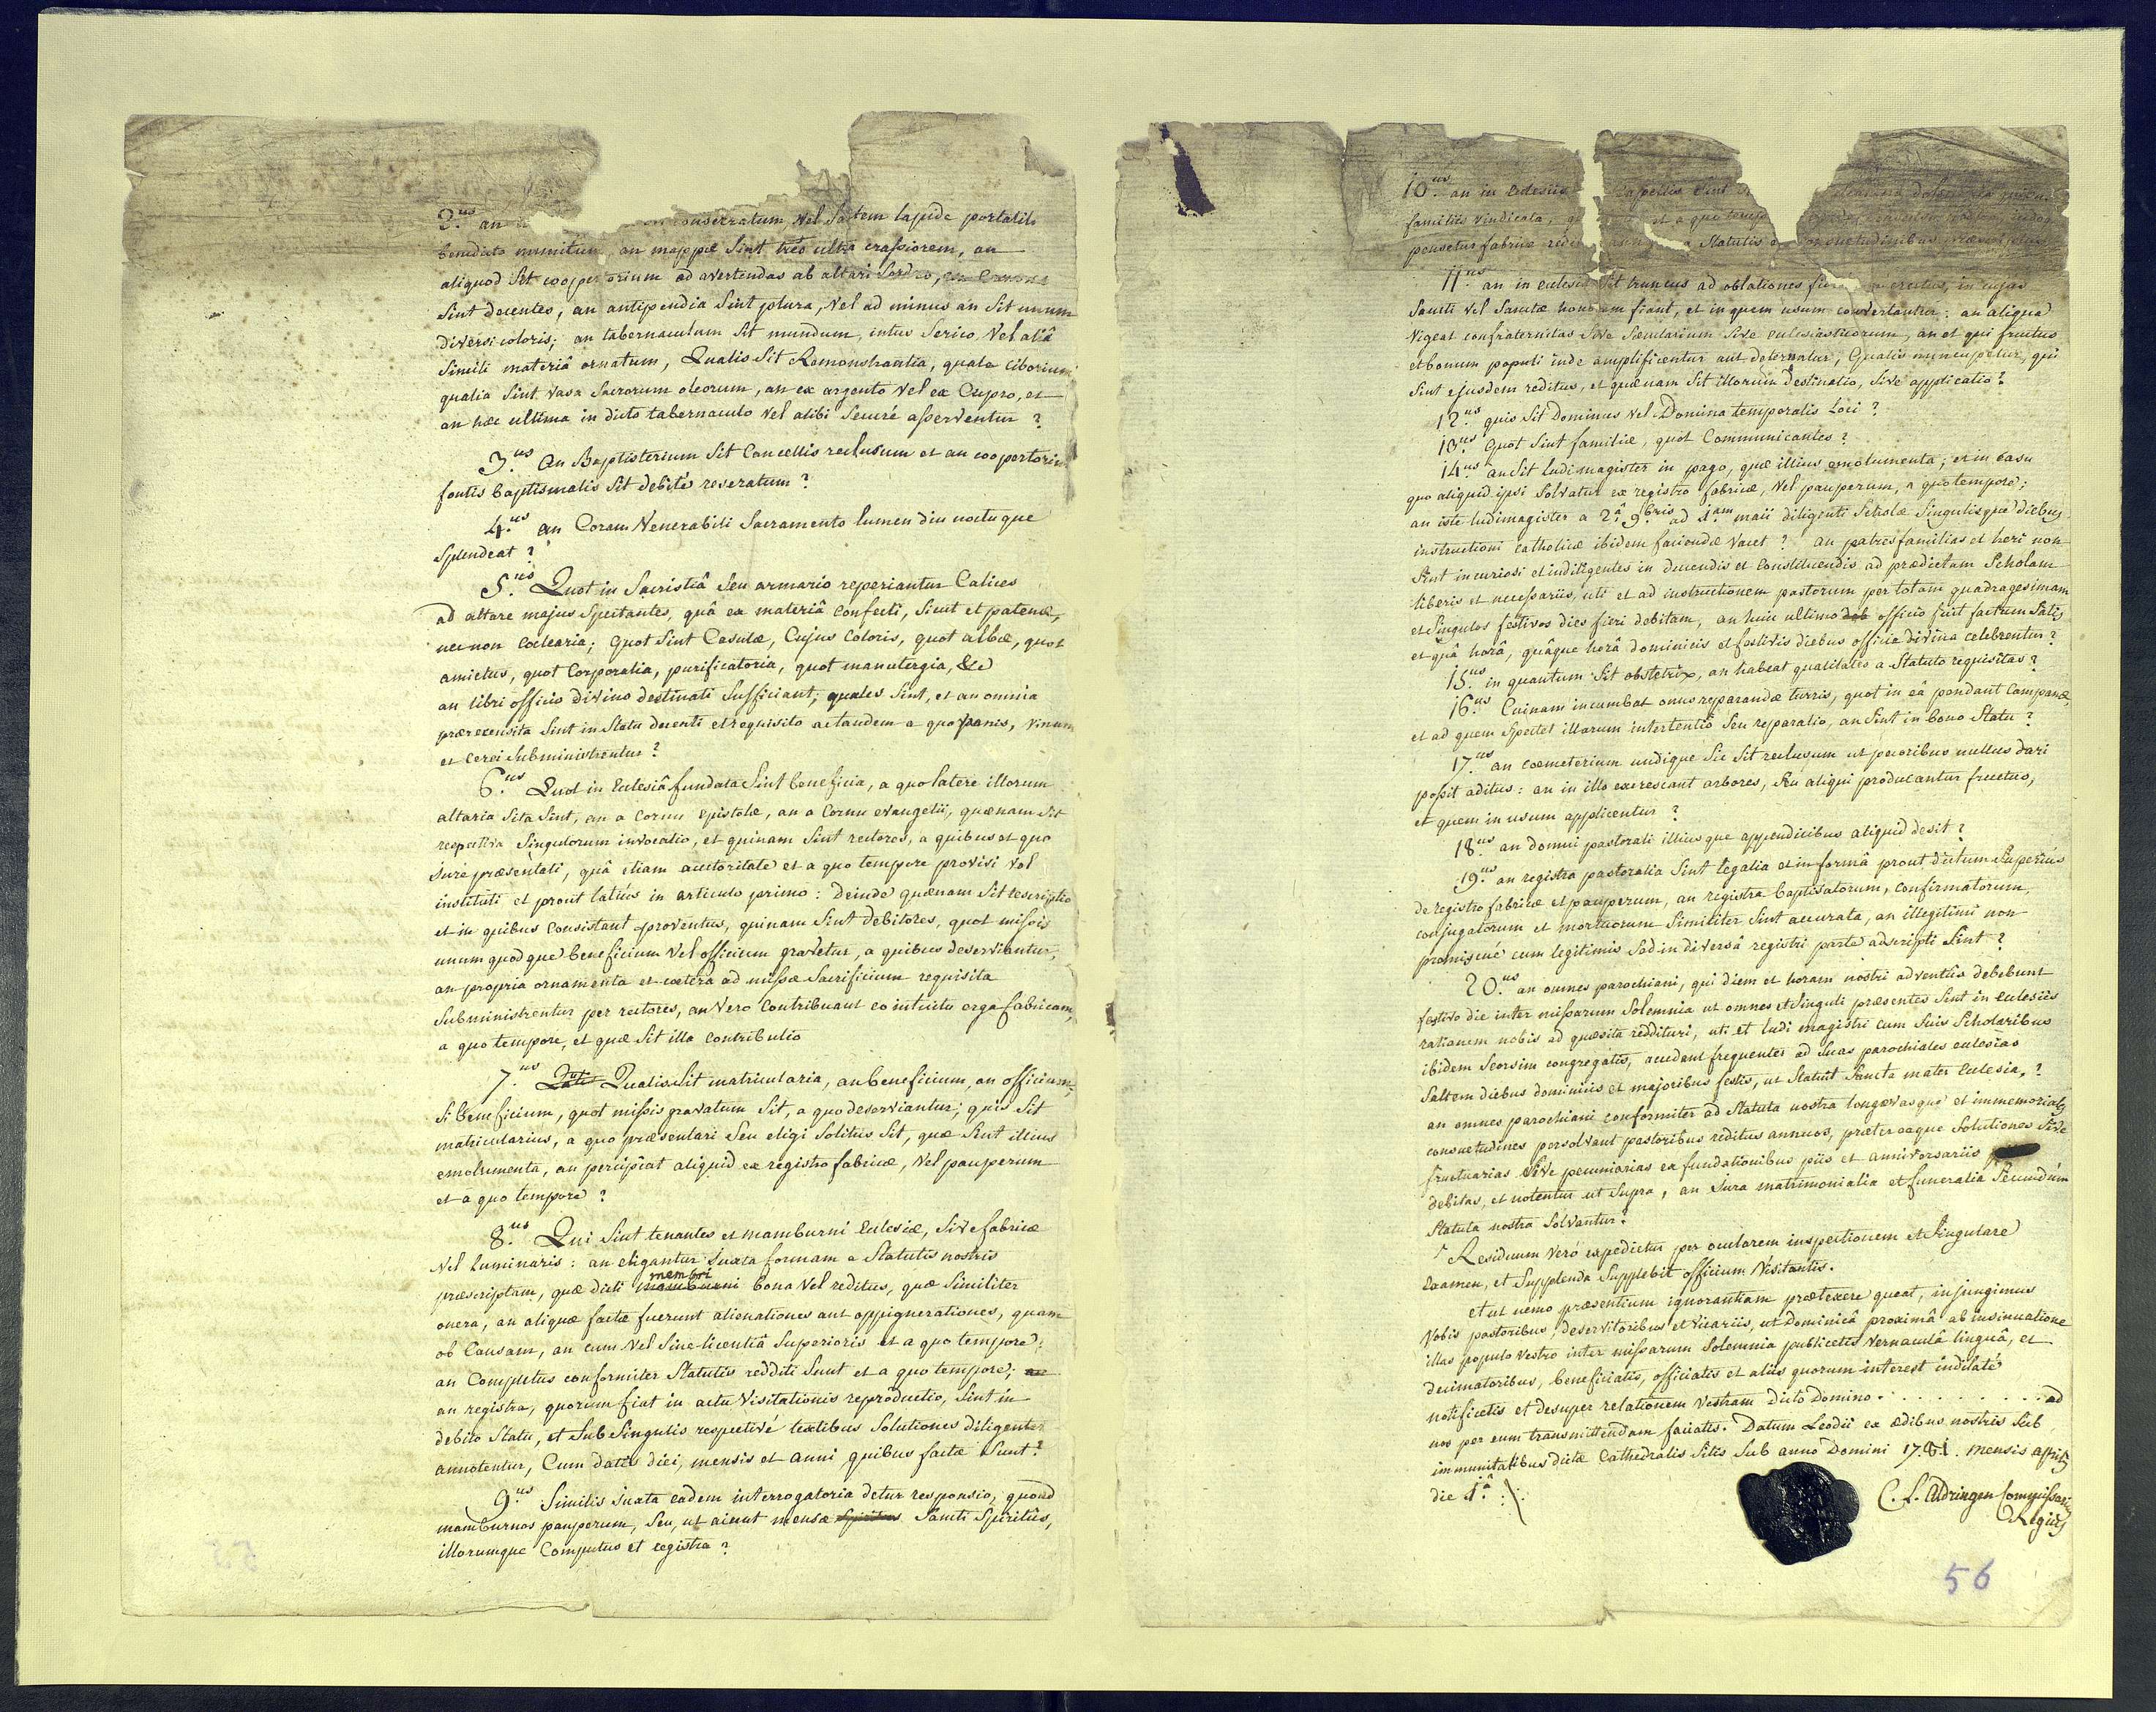 2.us an onsecratum, vel saltem lapide portatili
benedicto munitum, an mappæ sint tres ultra crassiorem, an
aliquod sit coopertorium ad avertendas ab altari sordes, an Canones
sint decentes, an antipendia sint plura, vel ad minus an sit unum
diversi coloris; an tabernaculum sit mundum, intus serico vel aliâ
simili materiâ ornatum, Qualis sit Remonstrantia, quale Ciborium
qualia sint vasa sacrorum oleorum, an ex argento vel ex Cupro, et
an hæc ultima in dicto tabernaculo vel alibi securé asserventur?
3.us an Baptisterium sit Cancellis reclusum et an coopertorium
fontis baptismalis sit debité reseratum?
4.us an Coram Venerabili Sacramento lumen diu noctuque
splendeat?
5.us Quot in sacristiâ seu armario reperiantur Calices
ad altare majus spectantes, quâ ex materiâ confecti, sicut et patenæ,
nec non Coclearia; quot sint Casulæ, Cujus Coloris, quot albæ, quot
amictus, quot Corporalia, purificatoria, quot manutergia, &c
an libri officio divino destinati sufficiant; quales sint, et an omnia
prærecensita sint in statu decenti et requisito ac tandem a quo panis, vinum
et Cerei subministrentur?
6.us Quot in Ecclesiâ fundata sint beneficia, a quo latere illorum
altaria sita sint, an a Cornu Epistolæ, an a Cornu evangelii, quænam sit
respectiva singulorum invocatio, et quinam sint rectores, a quibus et quo
jure præsentati, quâ etiam auctoritate et a quo tempore provisi vel
instituti et prout latiús in articulo primo: Deinde quænam sit rescriptio
et in quibus Consistant proventus, quinam sint debitores, quot missis
unum quodque beneficium vel officium gravetur, a quibus deserviantur,
an propria ornamenta et cætera ad missæ sacrificium requisita
subministrentur per rectores, an vero Contribuant eo intuitu erga fabricam,
a quo tempore, et quæ sit illa Contributio
7.us Qualis sit matricularia, an beneficium, an officium;
si beneficium, quot missis gravatum sit, a quo deserviantur; quis sit
matricularius, a quo præsentari seu eligi solitus sit, quæ sint illius
emolumenta, an percipiat aliquid ex registro fabricæ, vel pauperum
et a quo tempore?
8.us Qui sint tenantes et mamburni Ecclesiæ, sive fabricæ
vel Luminaris: an eligantur juxta formam a Statutis nostris
præscriptam, quæ dicti membri mamburni bona vel reditus, quæ similiter
onera, an aliquæ factæ fuerunt alienationes aut oppignerationes, quam
ob Causam, an cum vel sine licentiâ superioris et a quo tempore;
an Computus conformiter Statutis redditi sunt et a quo tempore; an
an registra, quorum fiat in actu Visitationis reproductio, sint in
debito statu, et sub singulis respectivé textibus solutiones diligenter
annotentur, Cum datis diei, mensis et anni quibus factæ sunt?
9.us Similis juxta eadem interrogatoria detur responsio, quoad
mamburnos pauperum, seu, ut aiunt mensæ Sancti Spiritûs,
illorumque Computus et registra?
10.us an in Ecclesiis Capellis sint
familiis vindicata, et a quo temp
pensetur fabricæ a Statutis consuetudinibus præscriptum
11.us an in ecclesiâ sit truncus ad oblationes erectus, in cujus
Sancti vel Sanctæ honorem fiant, et in quem usum convertantur: an aliqua
vigeat confraternitas sive sæcularium sive ecclesiasticorum, an et qui fructus
et bonum populi inde amplificentur aut deternatur, Qualis nuncupetur, qui
sint ejusdem reditus, et quænam sit illorum destinatio, sive applicatio?
12.us quis sit Dominus vel Domina temporalis Loci?
13.us Quot sint familiæ, quot Communicantes?
14.us an sit ludimagister in pago, quæ illius emolumenta; et in casu
quo aliquid ipsi solvatur ex registro fabricæ, vel pauperum, a quo tempore;
an iste ludimagister a 2â 9bris ad 1am maii diligenti scholæ singulisque diebus
instructioni catholicæ ibidem faciendæ vacet? an patresfamilias et heri non
sint incuriosi et indiligentes in ducendis et Constituendis ad prædictam Scholam
liberis et necessariis, uti et ad instructionem pastorum per totam quadragesimam
et singulos festivos dies fieri debitam, an huic ultimo officio fuit factum satis
et quâ horâ, quâque horâ dominicis et festivis diebus officia divina celebrentur?
15.us in quantum sit obstetrix, an habeat qualitates a Statuto requisitas?
16.us Cuinam incumbat onus reparandæ turris, quot in eâ pendant Campanæ,
et ad quem spectet illarum intertentio seu reparatio, an sint in bono Statu?
17.us an coemeterium undique sic sit reclusum ut pecoribus nullus dari
possit aditus: an in illo excrescant arbores, seu aliqui producantur fructus,
et quem in usum applicentur?
18.us an domui pastorali illiusque appendicibus aliquid desit?
19.us an registra pastoralia sint legalia et in formâ prout dictum superiús
de registro fabricæ et pauperum, an registra baptisatorum, confirmatorum,
conjugatorum et mortuorum similiter sint accurata, an illegitimi non
promiscué cum legitimis sed in diversâ registri parte adscripti sint?
20.us an omnes parochiani, qui diem et horam nostri adventûs debebunt
festivo die inter missarum solemnia ut omnes et singuli præsentes sint in ecclesiis
rationem nobis ad quæsita reddituri, uti et ludi magistri cum suis Scholaribus
ibidem seorsim congregatis, accedant frequenter ad suas parochiales ecclesias
saltem diebus dominicis et majoribus festis, ut statuit Sancta mater Ecclesia?
an omnes parochiani conformiter ad Statuta nostra longævasque et immemoriales
consuetudines persolvant pastoribus reditus annuos, præter eaque solutiones sive
fructuarias sive pecuniarias ex fundationibus piis et anniversariis
debitas, et notentur ut supra, an Jura matrimonialia et funeralia secundùm
Statuta nostra solvantur?
Residuum veró expedietur per ocularem inspectionem et singulare
examen, et supplenda supplebit officium Visitantis.
et ut nemo præsentium ignorantiam prætexere queat, injungimus
vobis pastoribus, deservitoribus et vicariis, ut dominicâ proximâ ab insinuatione
illas populo vestro inter missarum solemnia publicetis vernaculâ linguâ, et
decimatoribus, beneficiatis, officiatis et aliis quorum interest indilaté
notificetis et desuper relationem vestram dicto Domino . . . . . . . . . . ad
nos per eum transmittendam faciatis. Datum Leodii ex ædibus nostris sub
immunitatibus dictæ Cathedralis sitis sub anno Domini 1781. mensis aprilis
die 1â
C. L. Aldringen Commissarius
Regius
56